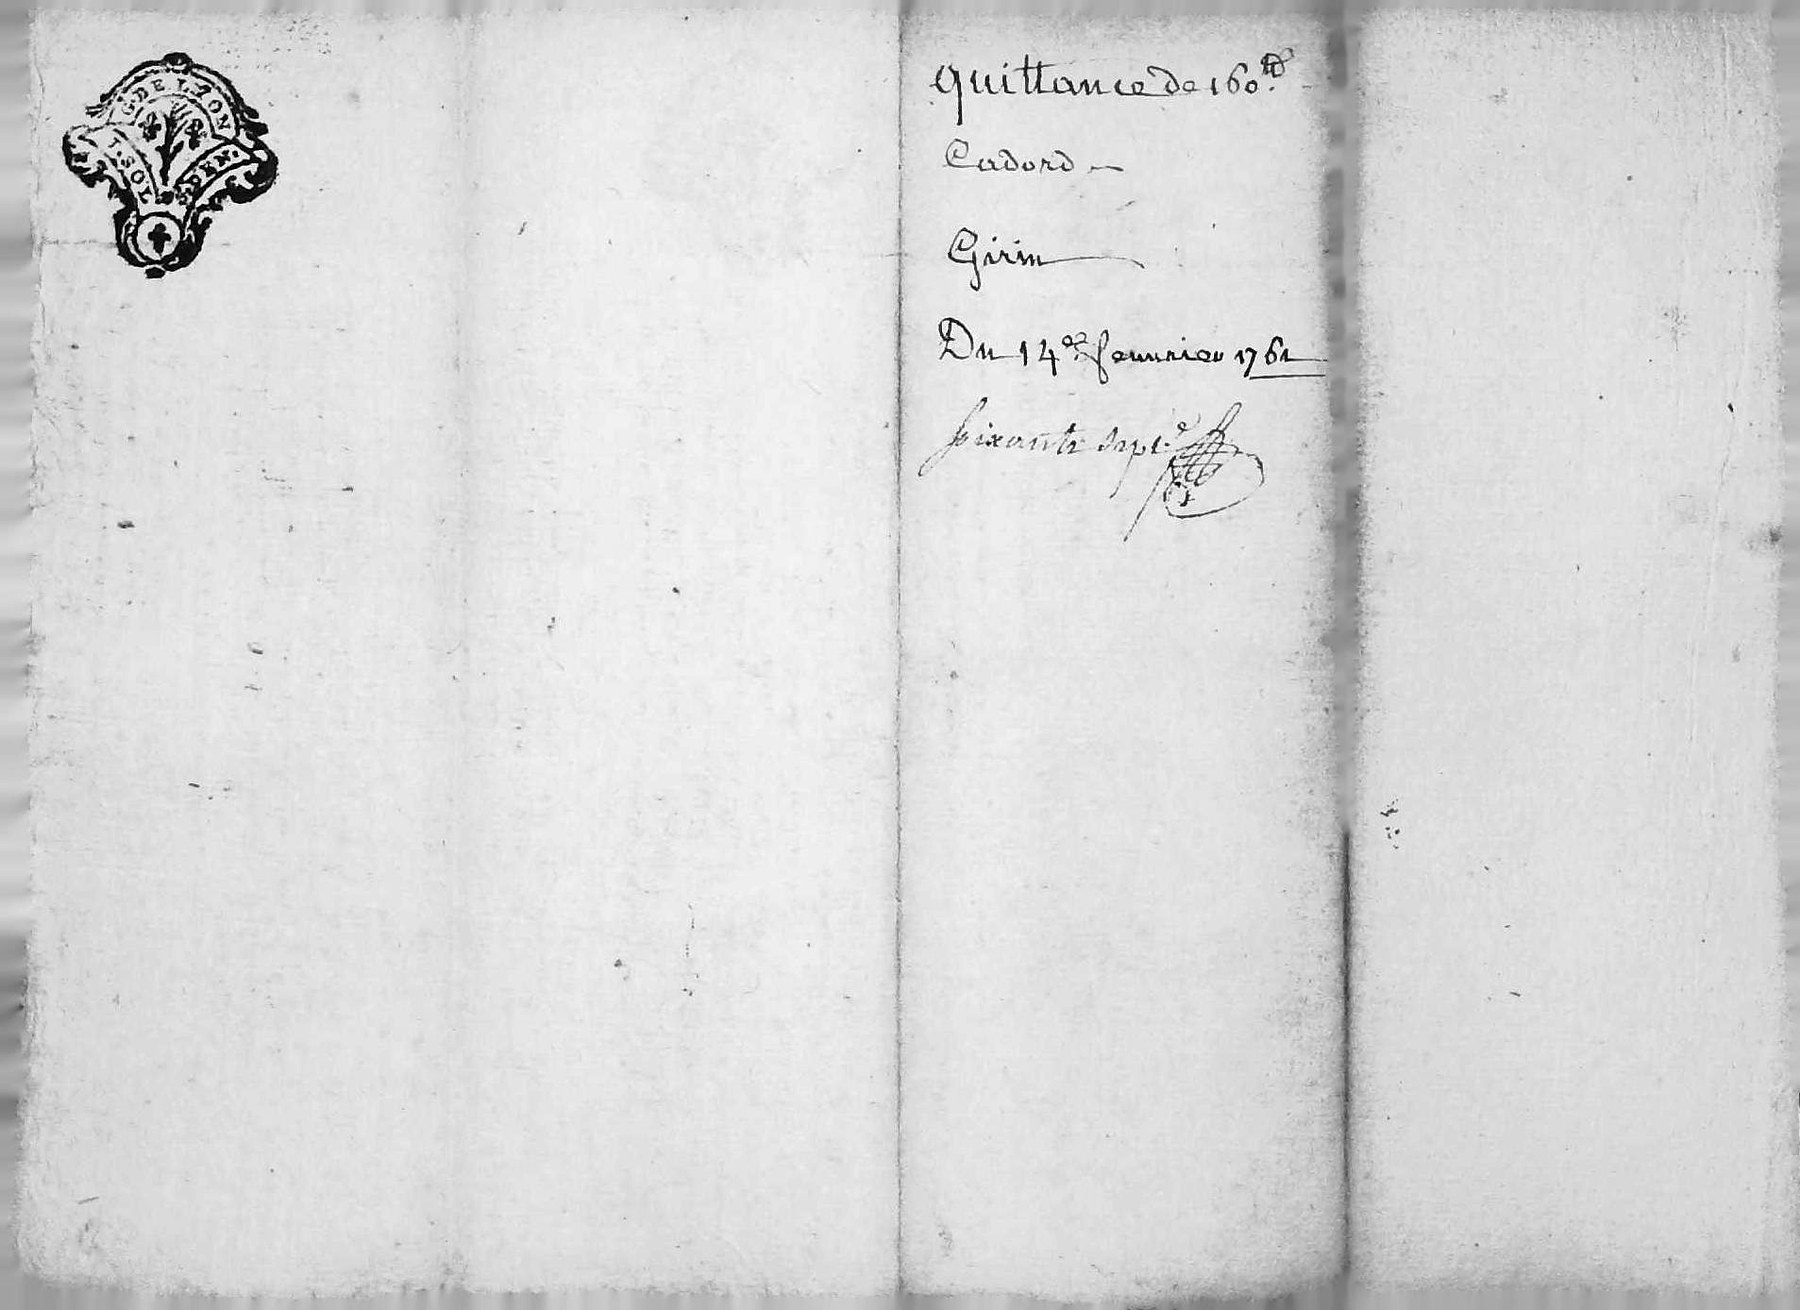 G. DE LYON
I. SOL
DEN.
Quittance de 160.ᵗᵗ
Cadord
Girin
Du 14.ᵉ feuurier 1761
soixante sept.ᵉ